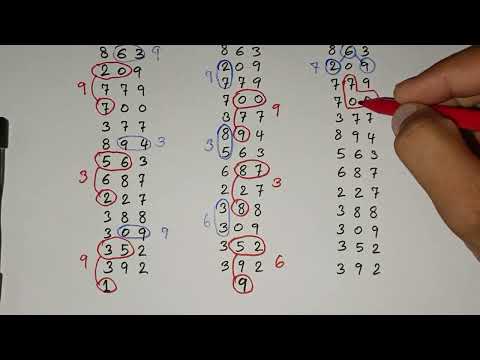 8 6 3 9
2 0 9
9 7 7 9
7 0 0
3 7 7
8 9 4 3
5 6 3
3 6 8 7
2 2 7
3 8 8
3 0 9 9
3 5 2
9 3 9 2
1
8 6 3
2 0 9
9 7 7 9
7 0 0
3 7 7 9
8 9 4
3 5 6 3
6 8 7
2 2 7 3
3 8 8
6 3 0 9
3 5 2
3 9 2 6
9
8 6 3
7 2 0 9
7 7 9
7 0
3 7 7
8 9 4
5 6 3
6 8 7
2 2 7
3 8 8
3 0 9
3 5 2
3 9 2